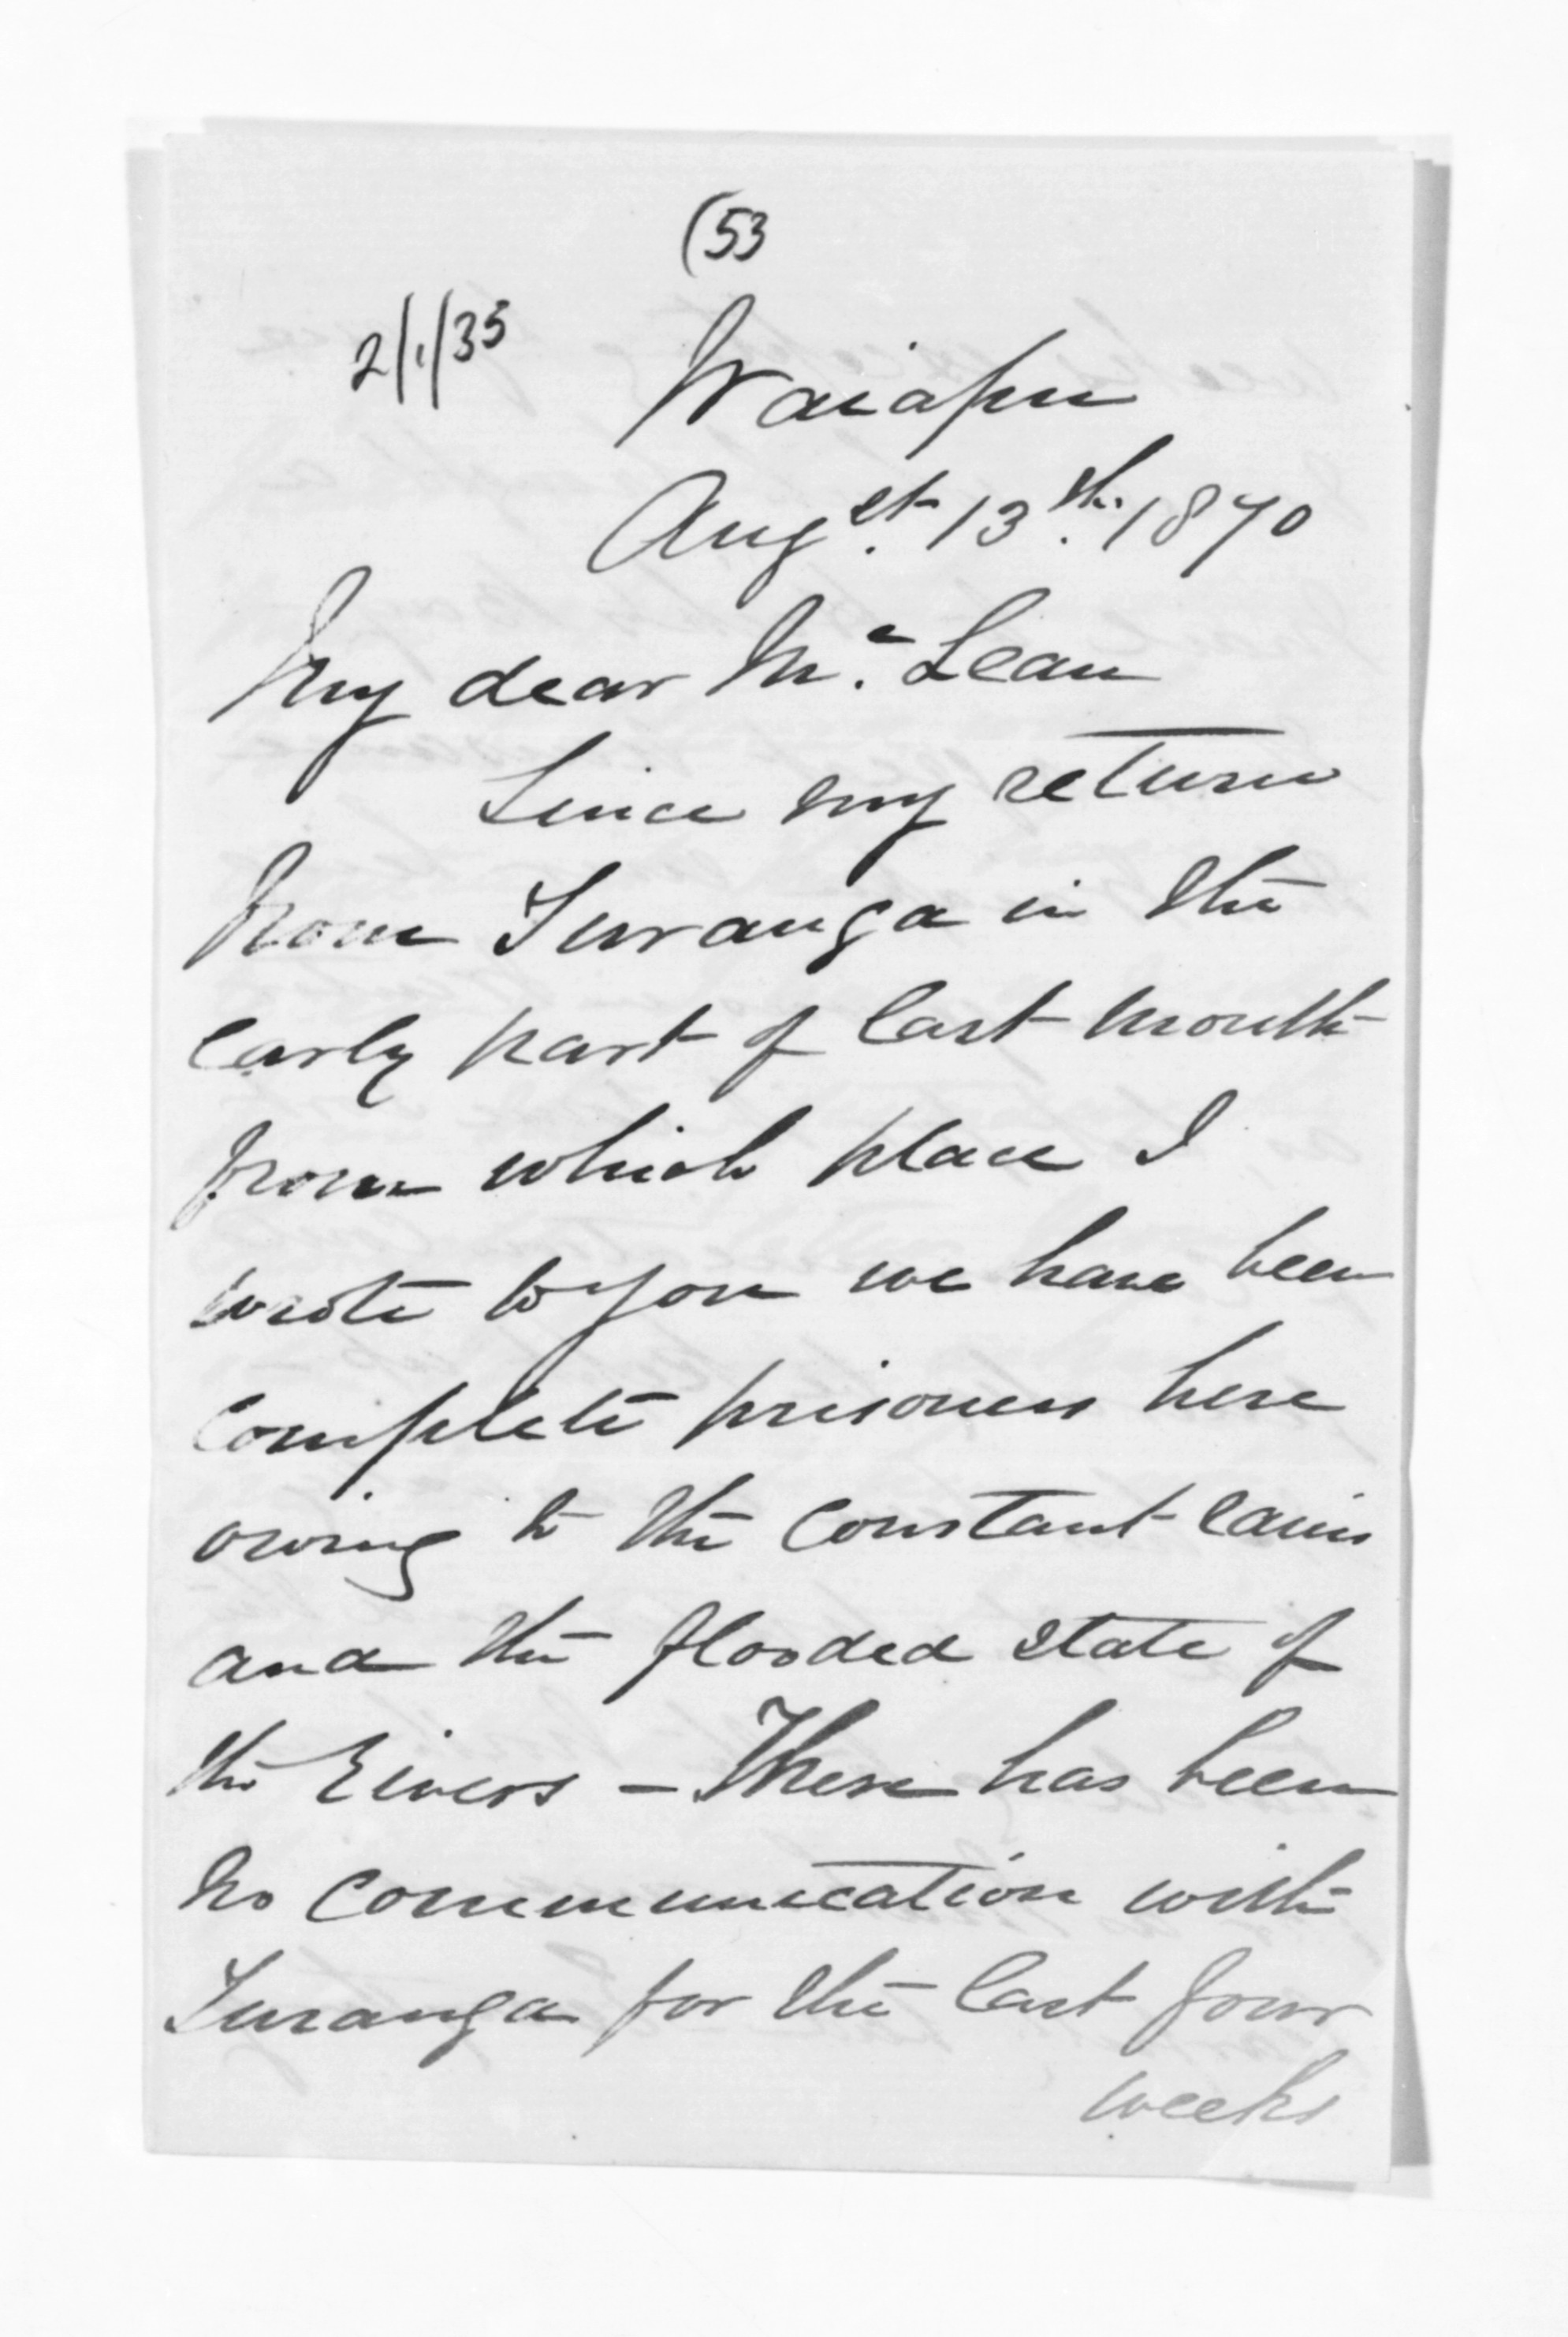 (53
2/1/35
Waiapu
Augst. 13th. 1870
My dear Mc. Lean
Since my return
from Turanga in the
early part of last month
from which place I
wrote to you we have been
complete prisoners here
owing to the constant rains
and the flooded state of
the rivers – There has been
no communication with
Turanga for the last four
weeks